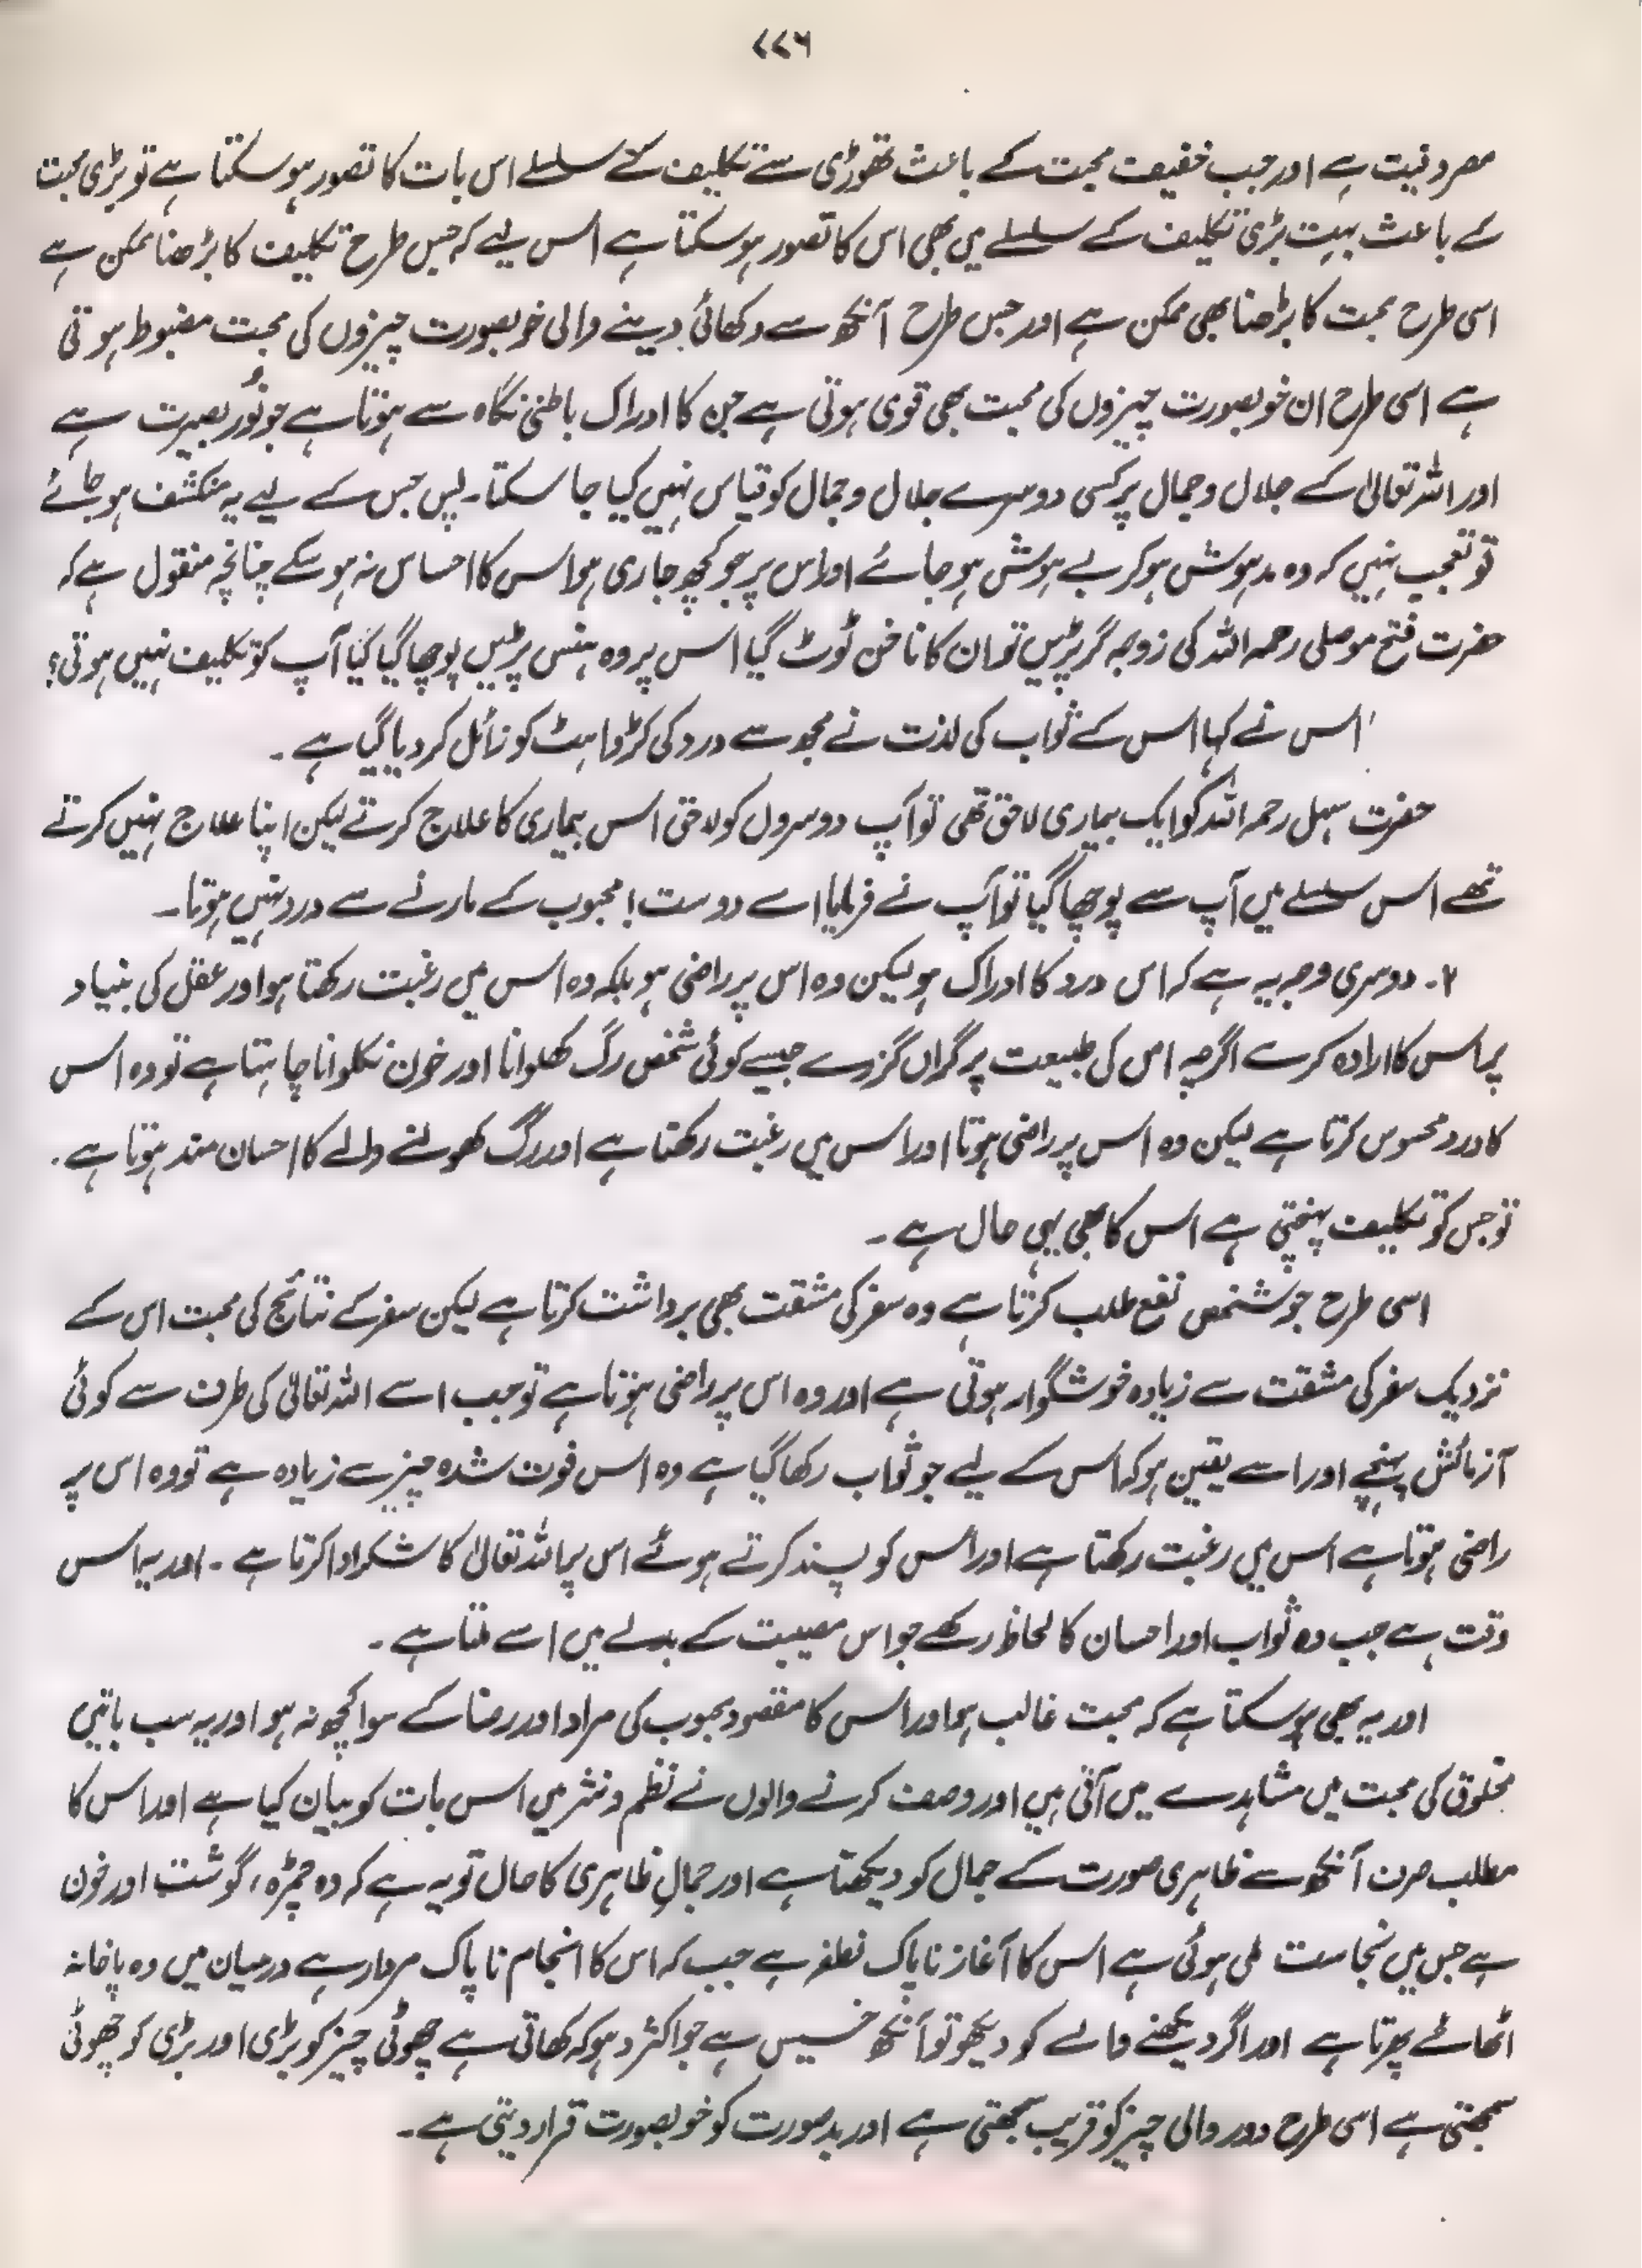 ۷۷۶
مصروفیت ہے اور جب خفیف محبت کے باعث تھوڑی سے تکلیف کے سلسلے اس بات کا تصور ہوسکتا ہے تو بڑی محبت
کے باعث بہت بڑی تکلیف کے سلسلے میں بھی اس کا تصور ہوسکتا ہے اس لیے کہ جس طرح تکلیف کا بڑھنا ممکن ہے
اسی طرح محبت کا بڑھنا بھی ممکن ہے اور جس طرح آنکھ سے دکھائی دینے والی خوبصورت چیزوں کی محبت مضبوط ہوتی
ہے اسی طرح ان خوبصورت چیزوں کی محبت بھی قوی ہوتی ہے جن کا ادراک باطنی نگاہ سے ہوتا ہے جو نُور بصیرت ہے
اور اللہ تعالیٰ کے جلال و جمال پر کسی دوسرے جلال و جمال کو قیاس نہیں کیا جا سکتا۔ پس جس کے لیے یہ منکشف ہو جائے
تو تعجب نہیں کہ وہ مدہوش ہو کر بے ہوش ہو جائے اور اس پر جو کچھ جاری ہو اس کا احساس نہ ہو سکے چنانچہ منقول ہے کہ
حضرت فتح موصلی رحمہ اللہ کی زوجہ گر پڑیں تو ان کا ناخن ٹوٹ گیا اس پر وہ ہنس پڑیں پوچھا گیا کیا آپ کو تکلیف نہیں ہوتی؟
اس نے کہا اس کے ثواب کی لذت نے مجھ سے درد کی کڑواہٹ کو زائل کر دیا گیا ہے۔
حضرت سہل رحمہ اللہ کو ایک بیماری لاحق تھی تو آپ دوسروں کو لاحق اس بیماری کا علاج کرتے لیکن اپنا علاج نہیں کرتے
تھے اس سلسلے میں آپ سے پوچھا گیا تو آپ نے فرمایا اے دوست! محبوب کے مارنے سے درد نہیں ہوتا۔
۲۔ دوسری وجہ یہ ہے کہ اس درد کا ادراک ہو لیکن وہ اس پر راضی ہو بلکہ وہ اس میں رغبت رکھتا ہو اور عقل کی بنیاد
پر اس کا ارادہ کرے اگرچہ اس کی طبیعت پر گراں گزرے جیسے کوئی شخص رگ کھلوانا اور خون نکلوانا چاہتا ہے تو وہ اس
کا درد محسوس کرتا ہے لیکن وہ اس پر راضی ہوتا اور اس میں رغبت رکھتا ہے اور رگ کھولنے والے کا احسان مند ہوتا ہے۔
تو جس کو تکلیف پہنچتی ہے اس کا بھی یہی حال ہے۔
اسی طرح جو شخص نفع طلب کرتا ہے وہ سفر کی مشقت بھی برداشت کرتا ہے لیکن سفر کے نتائج کی محبت اس کے
نزدیک سفر کی مشقت سے زیادہ خوشگوار ہوتی ہے اور وہ اس پر راضی ہوتا ہے تو جب اسے اللہ تعالیٰ کی طرف سے کوئی
آزمائش پہنچے اور اسے یقین ہو کہ اس کے لیے جو ثواب رکھا گیا ہے وہ اس فوت شدہ چیز سے زیادہ ہے تو وہ اس پر
راضی ہوتا ہے اس میں رغبت رکھتا ہے اور اس کو پسند کرتے ہوئے اس پر اللہ تعالیٰ کا شکر ادا کرتا ہے۔ اور یہ اس
وقت ہے جب وہ ثواب اور احسان کا لحاظ رکھے جو اس مصیبت کے بدلے میں اسے ملتا ہے۔
اور یہ بھی ہوسکتا ہے کہ محبت غالب ہو اور اس کا مقصود محبوب کی مراد اور رضا کے سوا کچھ نہ ہو اور یہ سب باتیں
مخلوق کی محبت میں مشاہدے میں آتی ہیں اور وصف کرنے والوں نے نظم و نثر میں اس بات کو بیان کیا ہے اور اس کا
مطلب صرف آنکھ سے ظاہری صورت کے جمال کو دیکھتا ہے اور جمالِ ظاہری کا حال تو یہ ہے کہ وہ چمڑہ، گوشت اور خون
ہے جس میں نجاست ملی ہوئی ہے اس کا آغاز ناپاک نطفہ ہے جب کہ اس کا انجام ناپاک مردار ہے درمیان میں وہ پاخانہ
اٹھائے پھرتا ہے اور اگر دیکھنے والے کو دیکھو تو آنکھ خسیس ہے جو اکثر دہوکہ کھاتی ہے چھوٹی چیز کو بڑی اور بڑی کو چھوٹی
سمجھتی ہے اسی طرح دور والی چیز کو قریب سمجھتی ہے اور بدصورت کو خوبصورت قرار دیتی ہے۔